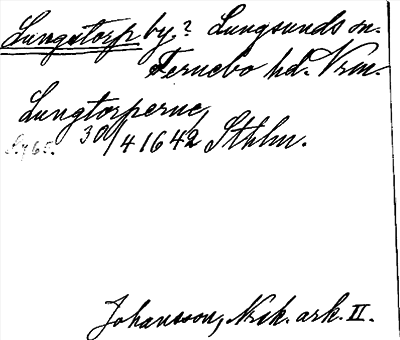 Lungstorp by? Lungsunds sn.
Fernebo hd. Vrm.
Lungtorperne,
30/4 1642 Sthlm.
Johansson, Nrk. ark. II.